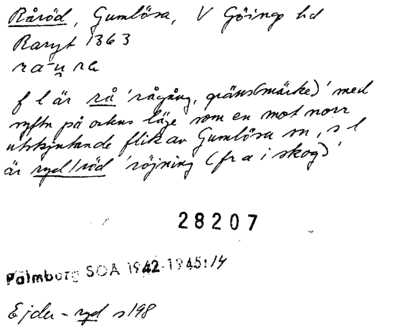 Råröd, Gumlösa, V Göinge hd
Raryt 1363
ra-u ra
f l är rå 'rågång, gräns(märke)' med
syftn på ortens läge som en mot norr
utskjutande flik av Gumlösa sn, s l
är ryd/röd 'röjning (fr a i skog)'
28207
Palmborg SOÄ 1942-1945:14
Ejder- ryd s 198